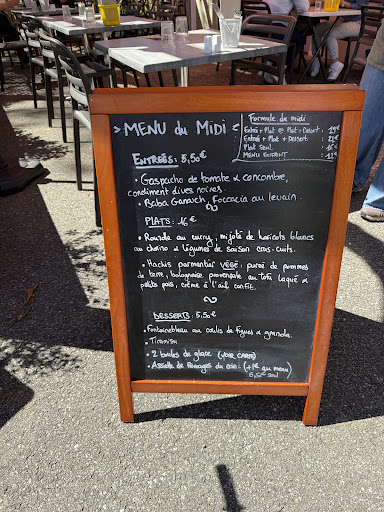 > MENU du MIDI <
Formule du midi
Entré + Plat + Dessert
Plat seul
MENU ENFANT
ENTRÉES : 5,5€
• Gaspacho de tomate & concombre,
condiment olives noires.
• Baba Ganoush, Foccacia au levain.
PLATS : 16€
au curry, mijoté de haricots blancs
au chorizo & légumes de saison cros-cuits.
• Hachis parmentier VÉGÉ : purée de pommes
de terre, bolognaise provençale au tofu laqué &
petits pois, crème à l'ail confit.
DESSERTS : 5,50€
• Fontainebleau au coulis de figues & granola.
• Tiramisu
• 2 boules de glace (VOIR CARTE)
• Assiette de fromages du coin : (+1€ au menu)
6,50€ seul